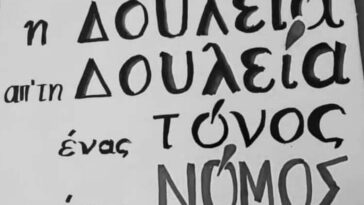 η ΔΟΥΛειά
απ'τη ΔΟΥΛεία
ένας ΤΌΝΟς
ΝΌΜΟΣ